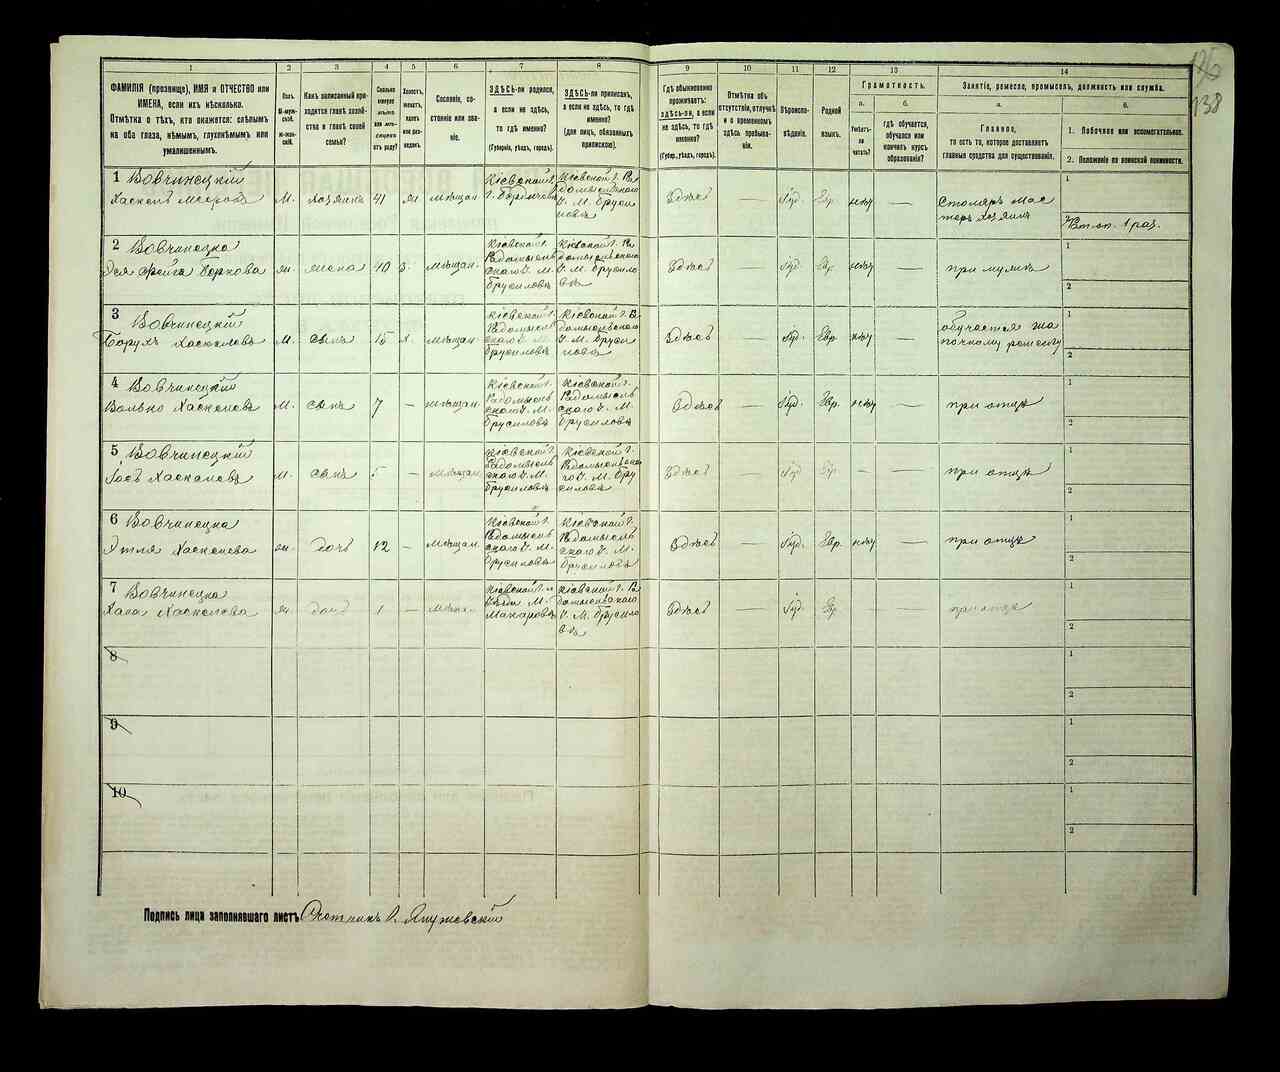 138
1
2
3
4
5
6
7
8
9
10
11
12
13
14
ФАМИЛІЯ (прозвище), ИМЯ и ОТЧЕСТВО или
ИМЕНА, если ихъ нѣсколько.
Отмѣтка о тѣхъ, кто окажется: слѣпымъ
на оба глаза, нѣмымъ, глухонѣмымъ или
умалишеннымъ.
Полъ.
М-муж-
ской.
Ж-жен-
скій.
Какъ записанный при-
ходится главѣ хозяй-
ства и главѣ своей
семьи?
Сколько
минуло
лѣтъ
или мѣ-
сяцевъ
отъ роду?
Холостъ,
женатъ,
вдовъ
или раз-
веденъ.
Сословіе, со-
стояніе или зва-
ніе.
ЗДѢСЬ-ли родился,
а если не здѣсь,
то гдѣ именно?
(Губернія, уѣздъ, городъ).
ЗДѢСЬ-ли приписанъ,
а если не здѣсь, то гдѣ
именно?
(для лицъ, обязанныхъ
припискою).
Гдѣ обыкновенно
проживаетъ:
здѣсь-ли, а если
не здѣсь, то гдѣ
именно?
(Губер., уѣздъ, городъ).
Отмѣтка объ
отсутствіи, отлучкѣ
и о временномъ
здѣсь пребыва-
ніи.
Вѣроиспо-
вѣданіе.
Родной
языкъ.
Грамотность.
а.
Умѣетъ-
ли
читать?
б.
гдѣ обучается,
обучался или
кончилъ курсъ
образованія?
Занятіе, ремесло, промыселъ, должность или служба.
а.
Главное,
то есть то, которое доставляетъ
главныя средства для существованія.
б.
1. Побочное или вспомогательное.
2. Положеніе по воинской повинности.
1 Вовчинецкій
Хаскель
М.
хозяинъ
41
Мѣщан.
Кіевской г.
Кіевской г. Ра
домысльскаго
У. М. Бруси
ловъ
Здѣсь
—
Іуд.
Евр.
нѣт
—
Столяръ мас
теръ хозяинъ
1
2
1 раз.
2 Вовчинецка
Фейга Боркова
ж.
жена
40
З.
Мѣщан.
Кіевской г.
Радомысль
скаго У. М.
Брусиловъ
Кіевской г. Ра
домысльскаго
У. М. Брусило
въ
Здѣсь
—
Іуд.
Евр.
нѣт
—
при мужѣ
1
2
3 Вовчинецкій
Борухъ Хаскелевъ
М.
сынъ
15
х.
Мѣщан.
Кіевской г.
Радомысль
скаго У. М.
Брусиловъ
Кіевской г. Ра
домысльскаго
У. М. Бруси
ловъ
Здѣсь
—
Іуд.
Евр.
нѣт
—
обучается
ремеслу
1
2
4 Вовчинецкій
Волько Хаскелевъ
М.
сынъ
7
—
Мѣщан.
Кіевской г.
Радомысль
скаго У. М.
Брусиловъ
Кіевской г.
Радомысль
скаго У. М.
Брусиловъ
Здѣсь
—
Іуд.
Евр.
нѣт
—
при отцѣ
1
2
5 Вовчинецкій
Іосъ Хаскелевъ
М.
сынъ
5
—
Мѣщан.
Кіевской г.
Радомысль
скаго У. М.
Брусиловъ
Кіевской г.
Радомысльска
го У. М. Бру
силовъ
Здѣсь
—
Іуд
Евр.
—
—
при отцѣ
1
2
6 Вовчинецка
Этля Хаскелева
ж.
дочь
12
—
Мѣщан.
Кіевской г.
Радомысль
скаго У. М.
Брусиловъ
Кіевской г.
Радомысль
скаго У. М.
Брусиловъ
Здѣсь
—
Іуд.
Евр.
нѣт
—
при отцѣ
1
2
7 Вовчинецка
Хана Хаскелева
ж.
дочь
1
—
Мѣщан.
Кіевской г.
М.
Макаровъ
Кіевской г. Ра
домысльскаго
У. М. Брусило
въ
Здѣсь
—
Іуд
Евр
—
при отцѣ
1
2
8
1
2
9
1
2
10
1
2
Подпись лица заполнявшаго листъ Счетчикъ